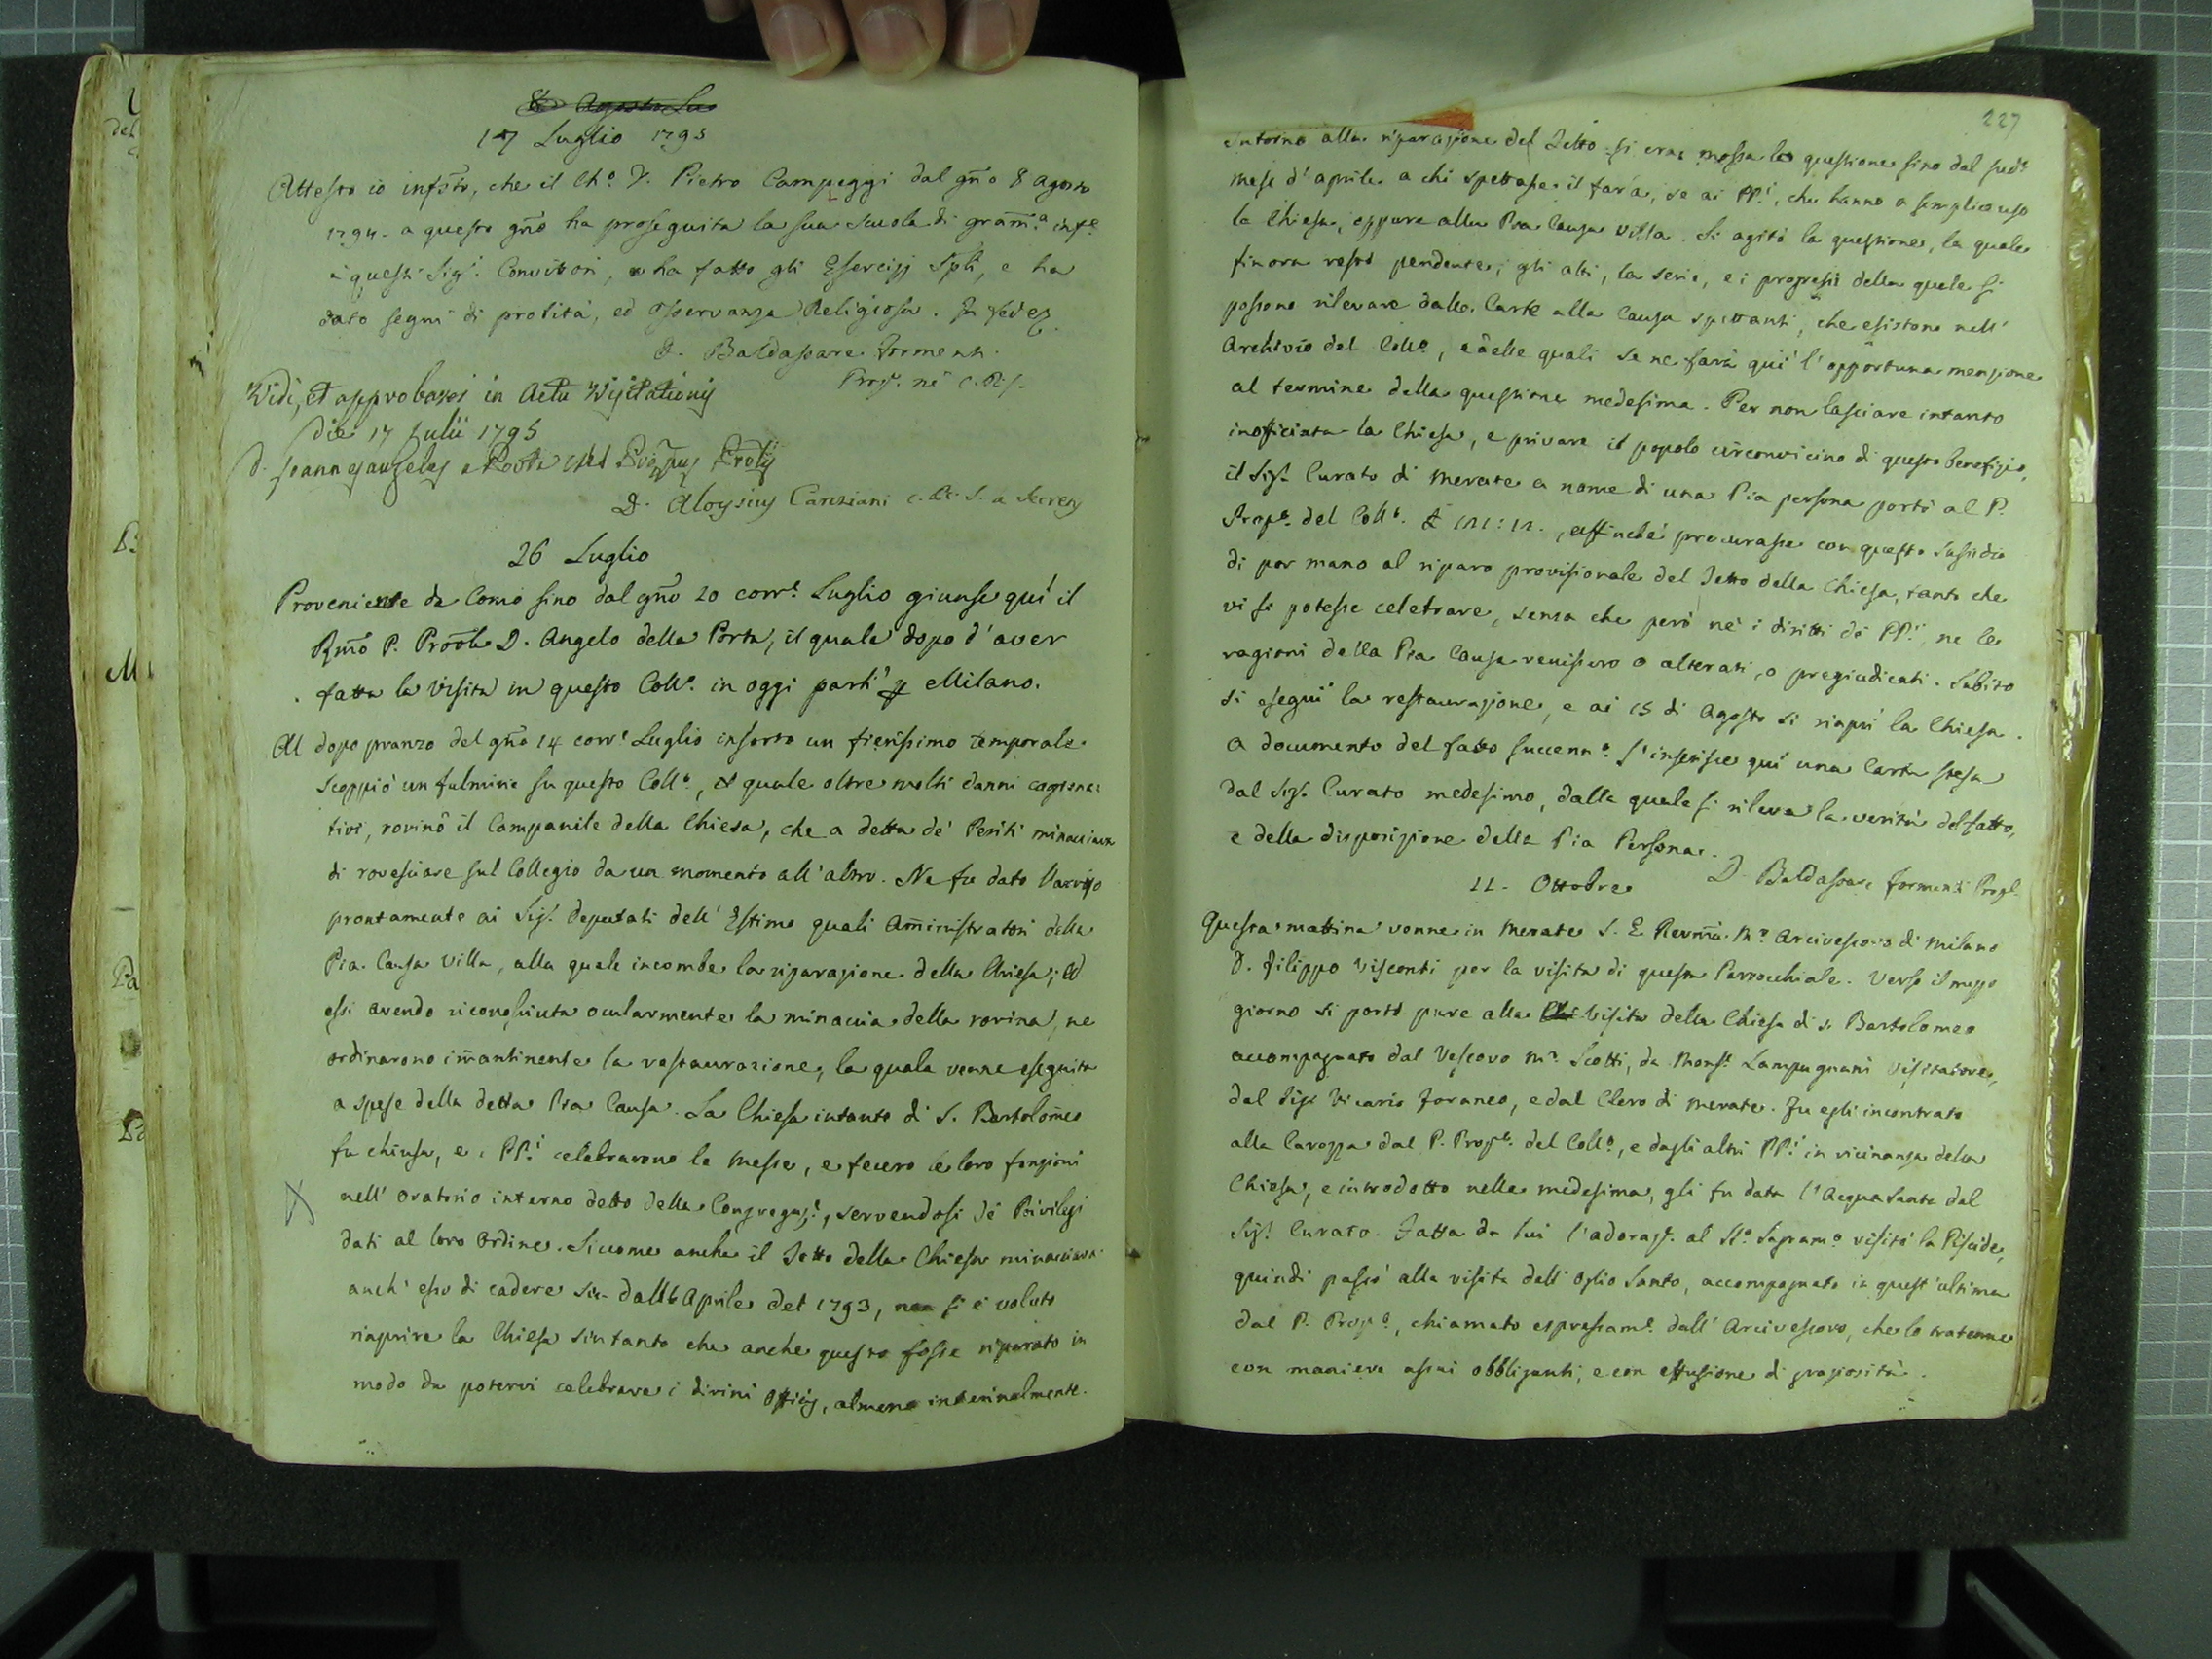 17 Luglio 1795
Attesto io infsto, che il Cho. D. Pietro Campeggi dal gno 8 Agosto
1794. a questo gno ha proseguita la sua scuola di gram.a inf.e
a questi Sig.i Convittori, ha fatto gli Esercizj Spli, e ha
dato segni di probità, ed osservanza Religiosa. In fede
D. Baldassare Formenti
Prop. ne' C.R.S.
Vidi, et approbavi in Actu Visitationis
die 17 Julii 1795
D. Joannes Angelus a Porta
D. Aloysius Canziani C.R.S. a Secretis
26 Luglio
Proveniente da Como sino dal gno 20 corr.e Luglio giunse quì il
Rmo P. Prole D. Angelo della Porta, il quale dopo d'aver
fatta la visita in questo Coll.o in oggi partì p Milano.
Al dopo pranzo del gno 14 corr.e Luglio insorto un fierissimo temporale
scoppiò un fulmine su questo Coll.o, il quale oltre molti danni cagiona=
tivi, rovinò il Campanile della Chiesa, che a detta de' Periti minacciava
di rovesciare sul Collegio da un momento all'altro. Ne fu dato l'avviso
prontamente ai Sig.i Deputati dell'Estimo quali Aministratori della
Pia Causa Villa, alla quale incombe la riparazione della Chiesa; ed
essi avendo riconosciuta ocularmente la minaccia della rovina, ne
ordinarono imantinente la restaurazione, la quale venne eseguita
a spese della detta Pia Causa. La Chiesa intanto di S. Bartolomeo
fu chiusa, e i PP.i celebrarono le Messe, e fecero le loro funzioni
nell'Oratorio interno detto della Congregaz.e, servendosi de' Privilegi
dati al loro Ordine. Siccome anche il Tetto della Chiesa minacciava
anch'esso di cadere sin dall'Aprile del 1793, non si è voluto
riaprire la Chiesa sintanto che anche questo fosse riparato in
modo da potervi celebrare i divini Officj, almeno interinalmente.
227
Intorno alla riparazione del Tetto si era mossa la questione sino dal sud.o
mese d'Aprile a chi spettasse il farla, se ai PP.i, che hanno a semplice uso
la Chiesa, oppure alla Pia Causa Villa. Si agitò la questione, la quale
finora restò pendente; gli atti, la serie, e i progressi della quale si
possono rilevare dalle Carte alla Causa spettanti, che esistono nell'
Archivio del Coll.o, e delle quali se ne farà quì l'opportuna menzione
al termine della questione medesima. Per non lasciare intanto
inofficiata la Chiesa, e privare il popolo circonvicino di questo benefizio,
il Sig.r Curato di Merate a nome di una Pia persona portò al P.
Prop.o del Coll.o affinchè procurasse con questo sussidio
di por mano al riparo provisionale del Tetto della Chiesa, tanto che
vi si potesse celebrare, senza che però nè i diritti de' PP.i, ne le
ragioni della Pia Causa venissero o alterati, o pregiudicati. Subito
si eseguì la restaurazione, e ai 15 di Agosto si riaprì la Chiesa.
A documento del fatto s'inserisce quì una Carta stesa
dal Sig.r Curato medesimo, dalla quale si rileva la verità del fatto,
e della disposizione della Pia Persona.
D. Baldassare Formenti Prop.
11. Ottobre
Questa mattina venne in Merate S. E. Revma M.r Arcivescovo di Milano
D. Filippo Visconti per la visita di questa Parrocchiale. Verso il mezzo
giorno si portò pure alla Visita della Chiesa di S. Bartolomeo
accompagnato dal Vescovo M.r Scotti, da Mons.r Lampugnani Visitatore,
dal Sig.r Vicario Foraneo, e dal Clero di Merate. Fu egli incontrato
alla Carozza dal P. Prop.o del Coll.o, e dagli altri PP.i in vicinanza della
Chiesa, e introdotto nella medesima, gli fu data l'Acqua Santa dal
Sig.r Curato. Fatta da lui l'adoraz.e al SS.o Sagram.o visitò la Pisside,
quindi passò alla visita dell'Oglio Santo, accompagnato in quest'ultima
dal P. Prop.o, chiamato espressam.e dall'Arcivescovo, che lo trattenne
con maniere assai obbliganti, e con effusione di graziosità.